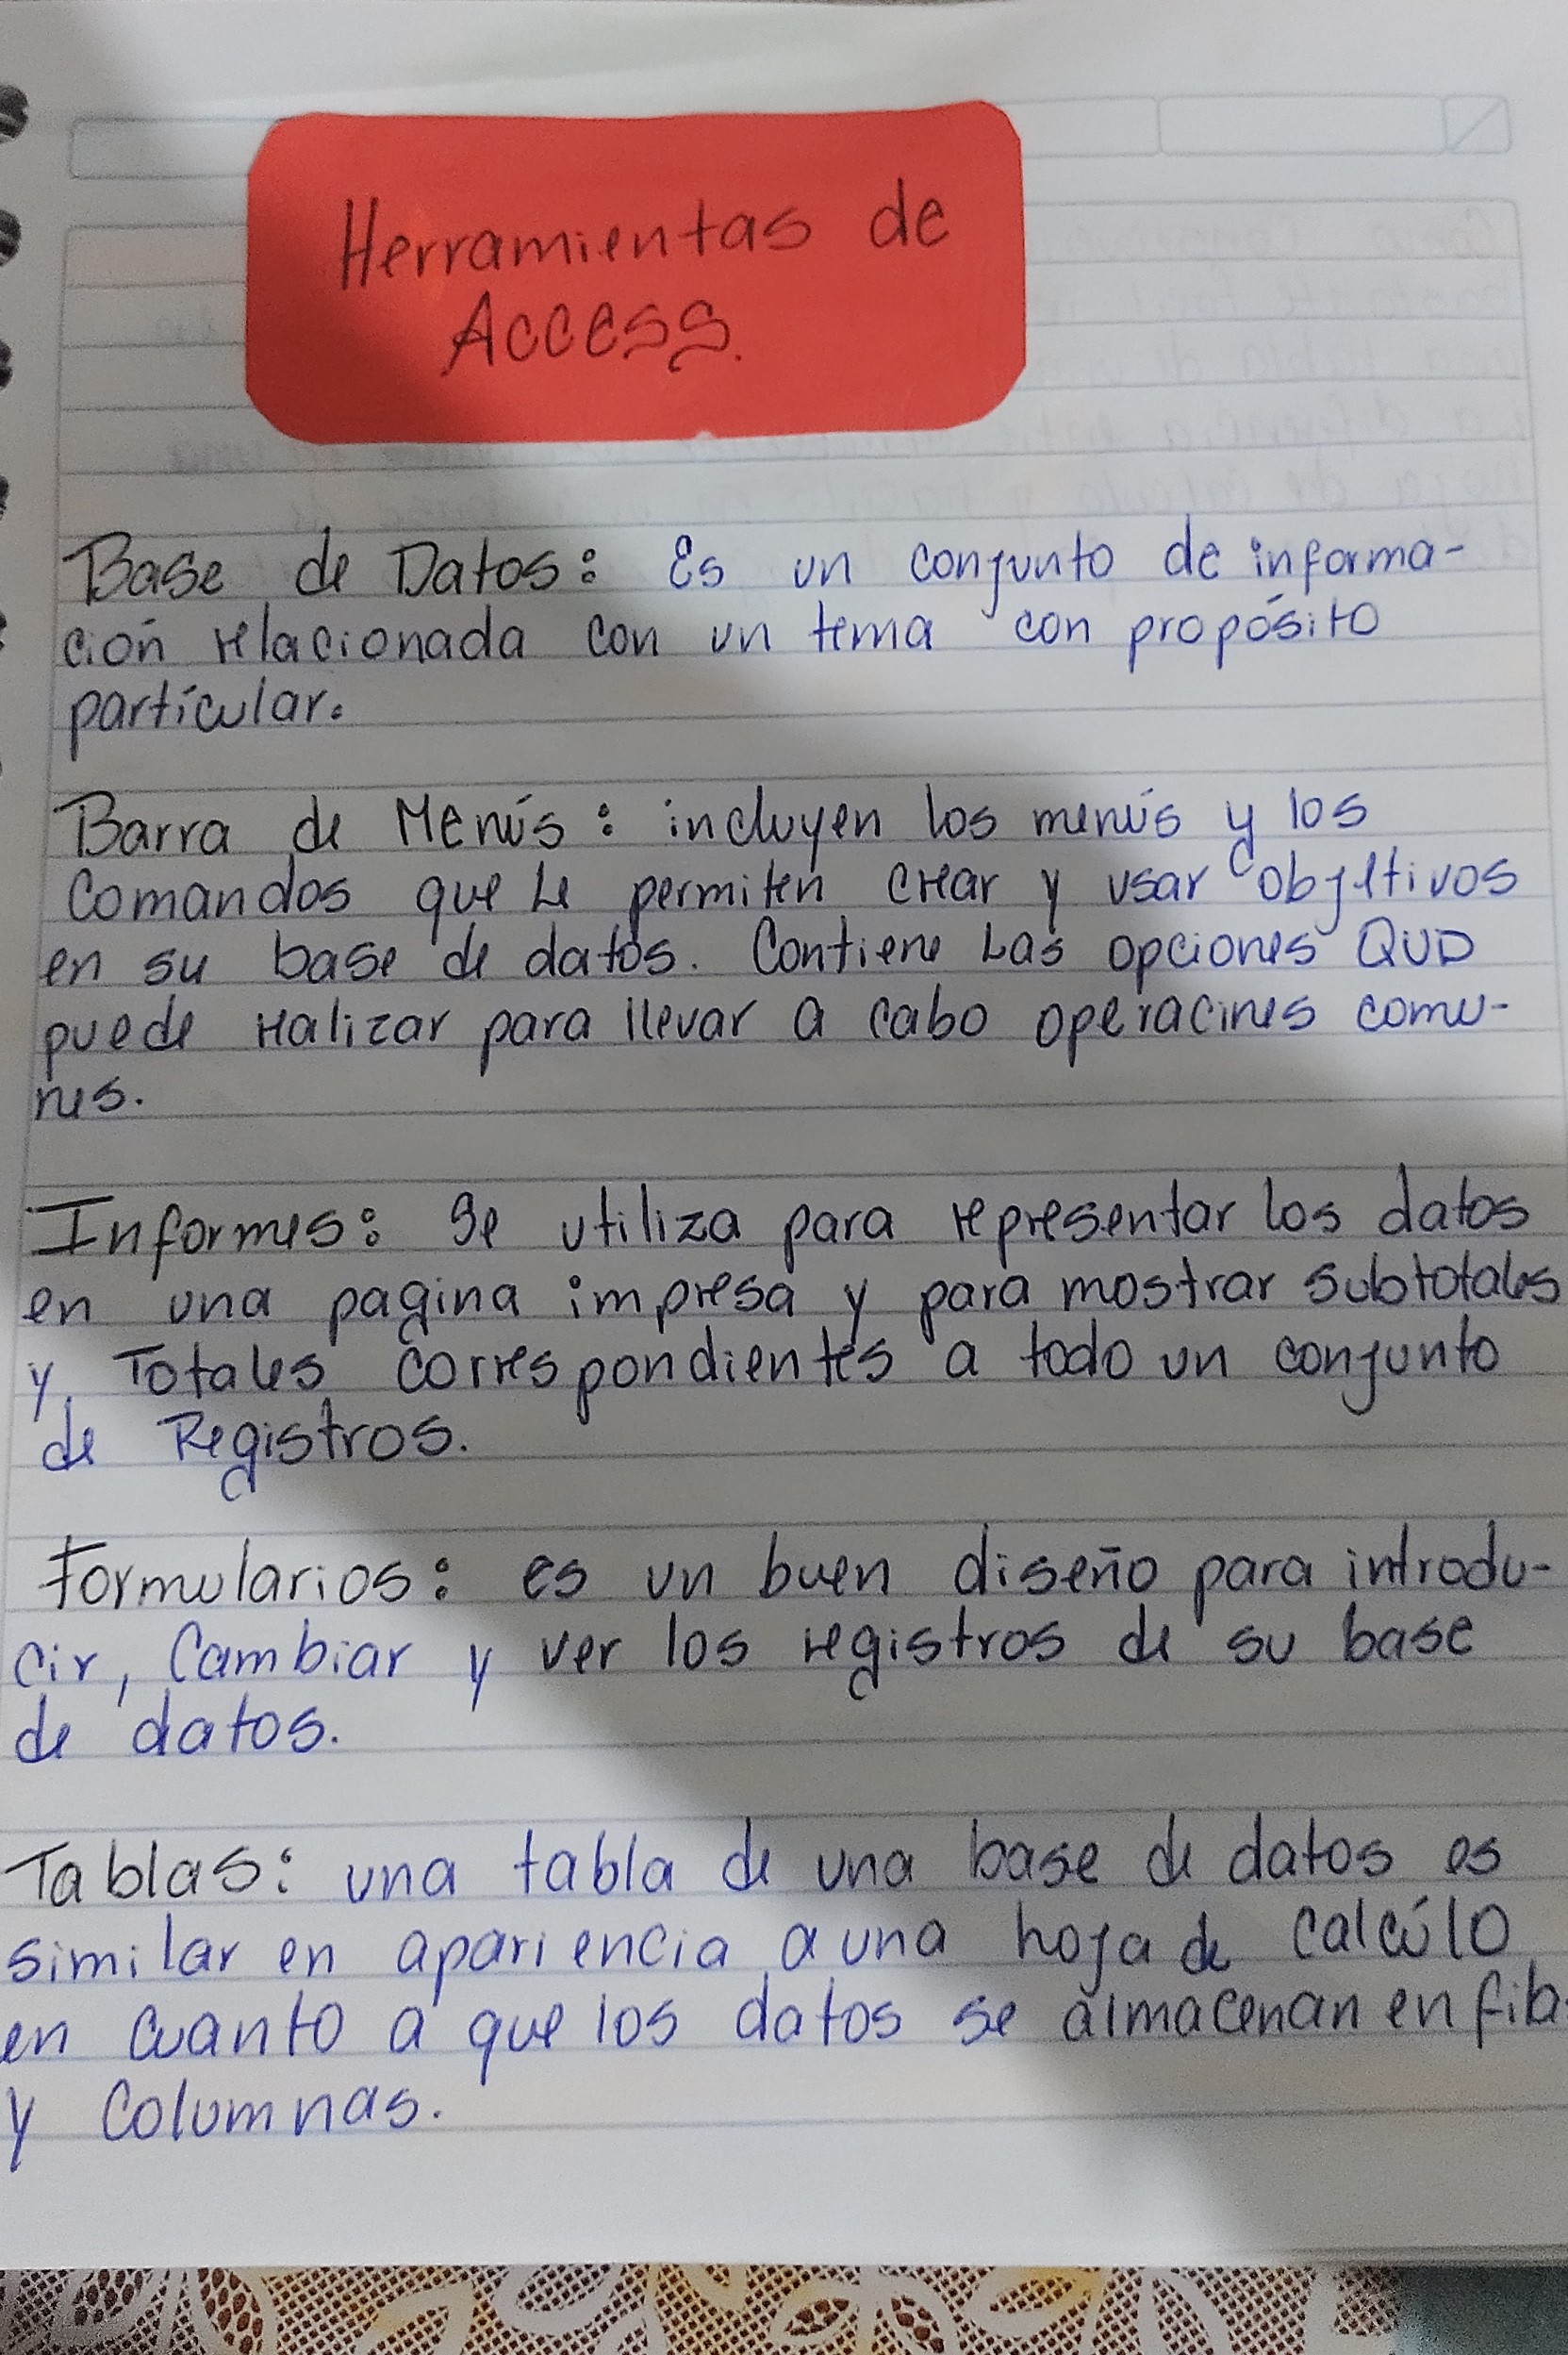 Herramientas de
Access.
Base de Datos: Es un conjunto de informa-
ción relacionada con un tema con propósito
particular.
Barra de Menús: incluyen los menús y los
Comandos que Le permiten crear y usar objetivos
en su base de datos. Contiene Las opciones QUD
puede realizar para llevar a cabo operacines comu-
nes.
Informes: Se utiliza para representar los datos
en una pagina impresa y para mostrar subtotales
y Totales correspondientes a todo un conjunto
de Registros.
Formularios: es un buen diseño para introdu-
cir, Cambiar y ver los registros de su base
de datos.
Tablas: una tabla de una base de datos es
similar en apariencia a una hoja de calcúlo
en cuanto a que los datos se almacenan en filas
y Columnas.